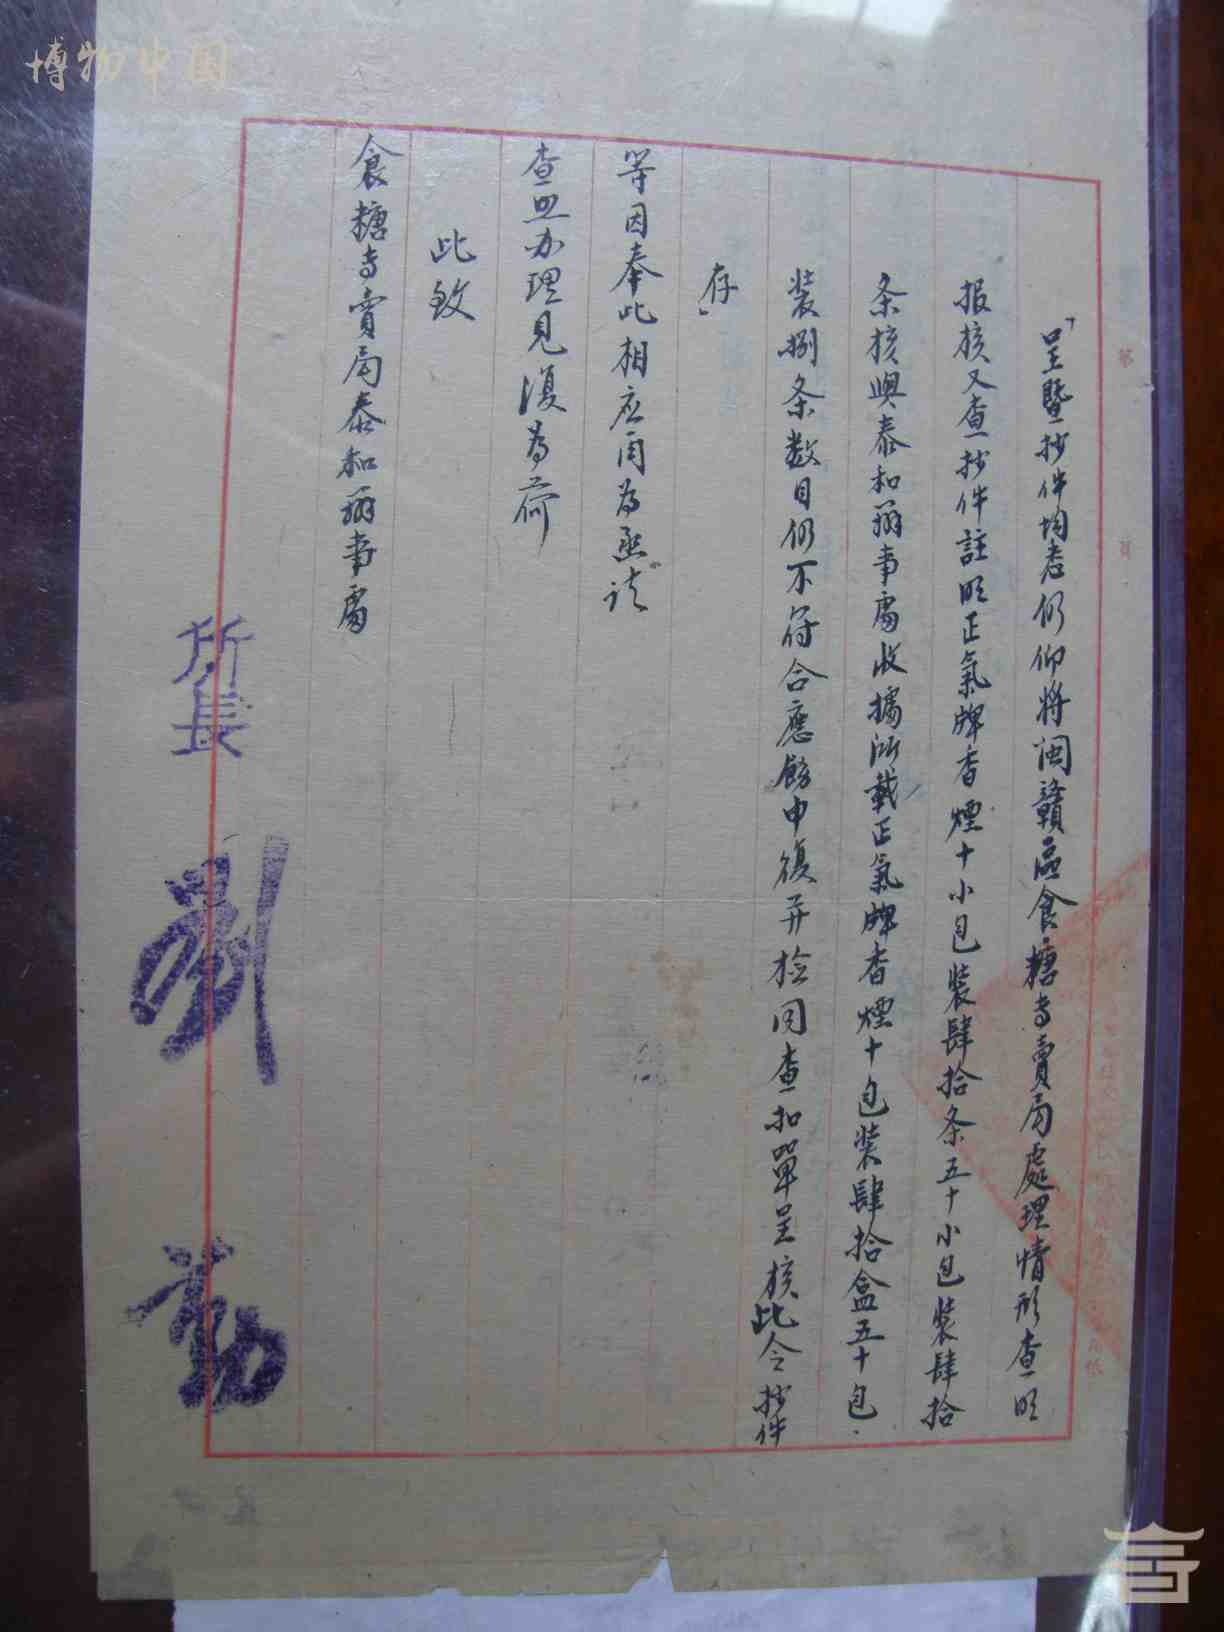 博物中国
第 頁
「呈暨抄件均悉仍仰将闽贛區食糖专賣局處理情形查明
报核又查抄件註明正氣牌香煙十小包装肆拾条五十小包装肆拾
条核與泰和辦事處收據所載正氣牌香煙十包装肆拾盒五十包
装捌条数目仍不符合應飭申復并检同查扣單呈核此令抄件
存」
等因奉此相应函为函请
查照办理见復为荷
此致
食糖专賣局泰和辦事處
所長